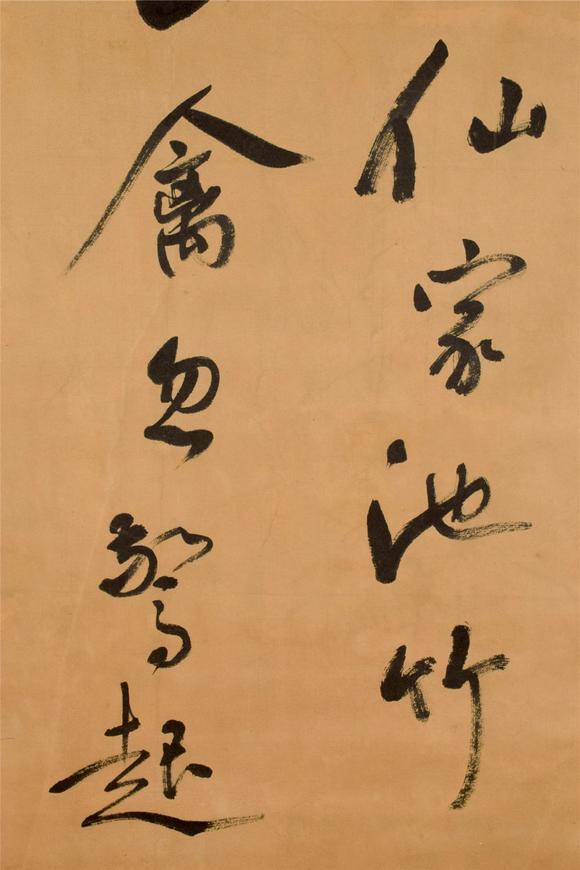 仙家池竹
禽忽驚起